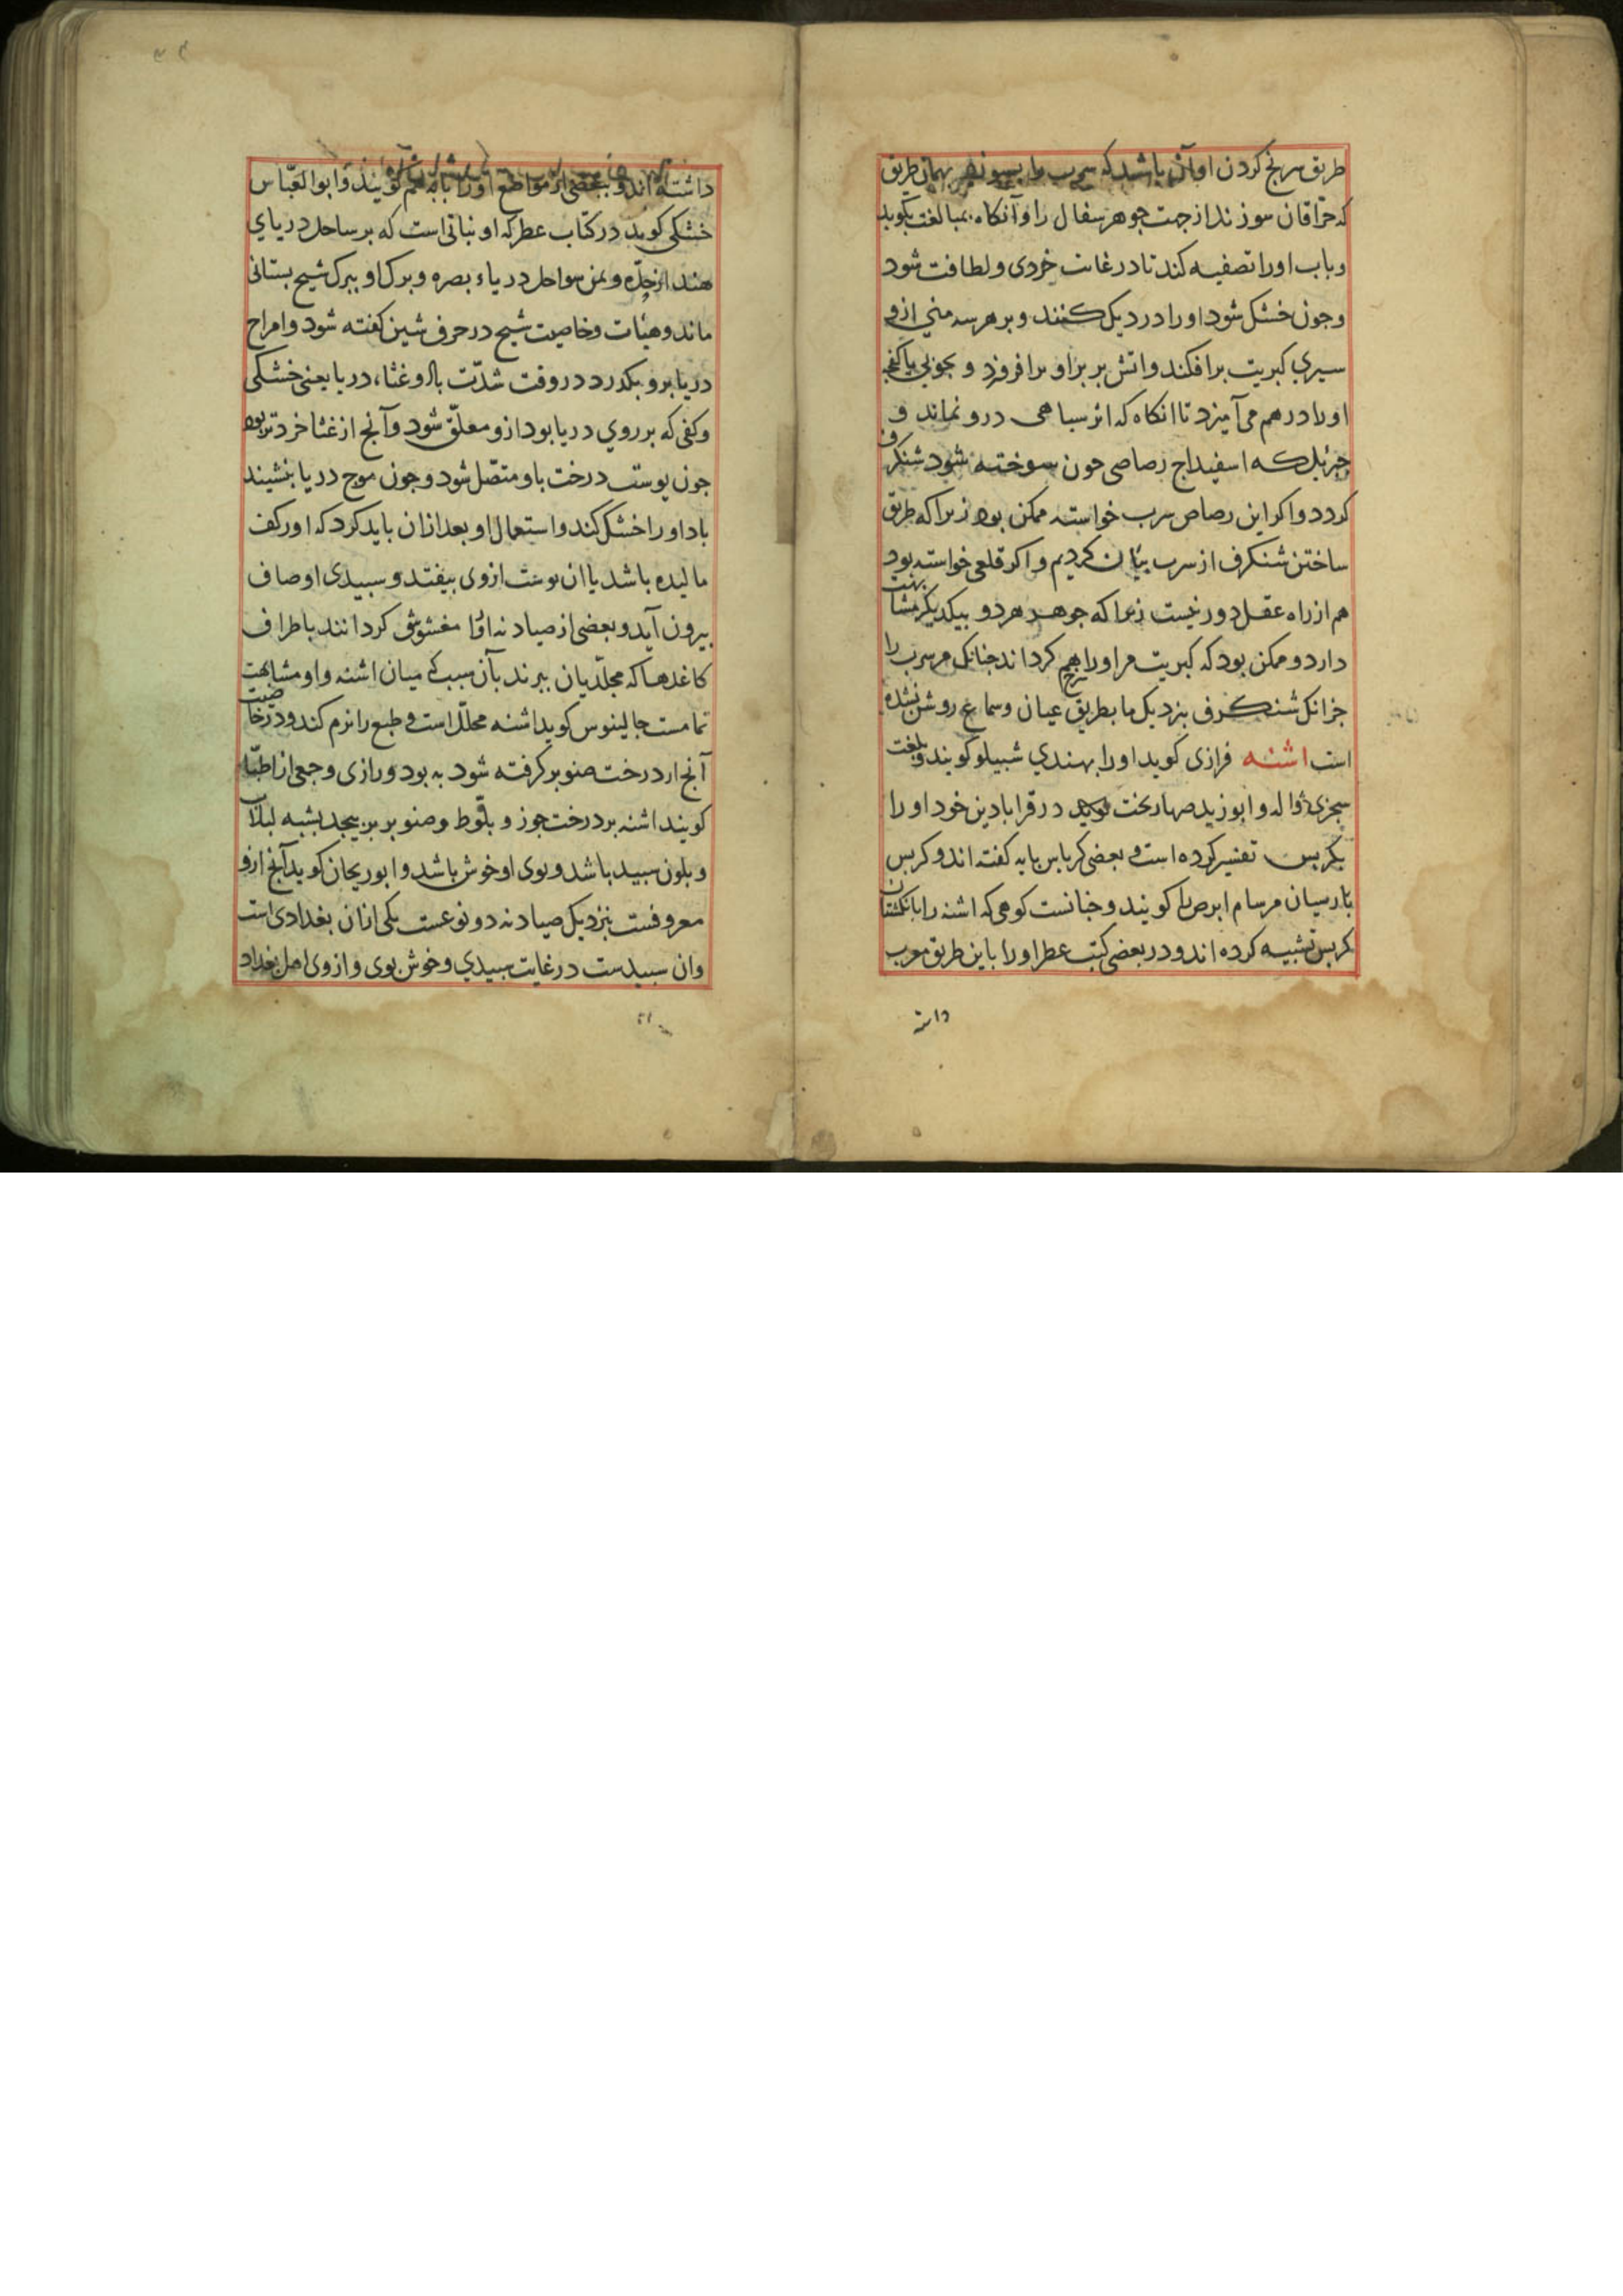 طریق سرنج کردن او آن باشد که سرب را بسوزند بهمان طریق
که حرّاقان سوزند از جهت جوهر سفال را و آنکاه بمبالغت بکوبد
و باب اورا تصفیه کند تا در غایت خردی و لطافت شود
و جون خشک شود اورا در دیک کنند و بر هر سه منی ازو
سیری کبریت برافکند و اتش بر بر او برافروزد و بجوبی یا کفجه
اورا درهم می آمیزد تا انکاه که اثر سیاهی درو نماند و
اسفیداج رصاصی جون سوخته شود شنکرف
کردد و اکر این رصاص سرب خواسته ممکن بود زیرا که طریق
ساختن شنکرف از سرب بیان کردیم و اکر قلعی خواسته بود
هم از راه عقل دور نیست زیرا که جوهر هر دو بیکدیکر مشابهت
دارد و ممکن بود که کبریت مر اورا سرخ کرداند جنانک مر سرب را
جز انک شنکرف بنزدیک ما بطریق عیان و سماع روشن نشده
است اشنه فزاری کوید اورا بهندی شبیلو کویند و بلغت
سجزی دواله و ابوزید صهاربخت کوید در قرابادین خود اورا
بکربس تفسیر کرده است و بعضی کرباس پایه کفته اند و کربس
بارسیان مر سام ابرص را کویند و جنانست کوهی که اشنه را بانکشتان
کربس تشبیه کرده اند و در بعضی کتب عطر اورا باین طریق معرب
داشته
داشته اند و بعضی از مواضع اورا کویند و ابوالعبّاس
خشکی کوید در کتاب عطر که او نباتی است که بر ساحل دریای
هند از جدّه و یمن سواحل دریاء بصره و برک او ببرک شیح بستانی
ماند و هیئات و خاصیت شیح در حرف شین کفته شود و امواج
دریا برو بکذرد در وقت شدّت باد و غثاء دریا یعنی خشکی
و کفی که بر روی دریا بود ازو معلّق شود و آنج از غثا خردتر بود
جون پوست درخت باو متصّل شود و جون موج دریا بنشیند
باد اورا خشک کند و استعمال او بعد ازان باید کرد که اورکف
مالیده باشد یا ان پوست ازوی بیفتد و سبیدی اوصاف
بیرون آید و بعضی از صیادنه اورا مغشوش کردانند باطراف
کاغدها که مجلّدیان ببرند بآن سبب که میان اشنه و او مشابهت
تمامست جالینوس کوید اشنه محلّل است و طبع را نرم کند و در خاصیت
آنج از درخت صنوبر کرفته شود به بود و رازی و جمعی از اطبّا
کویند اشنه بر درخت جوز و بلّوط و صنوبر بر پیجد بشبه لبلاب
و بلون سبید باشد و بوی او خوش باشد و ابوریحان کوید آنج ازو
معروفست بنزدیک صیادنه دو نوعست یکی ازان بغدادی است
وان سبیدست در غایت سبیدی و خوش بوی و ازوی اهل بغداد